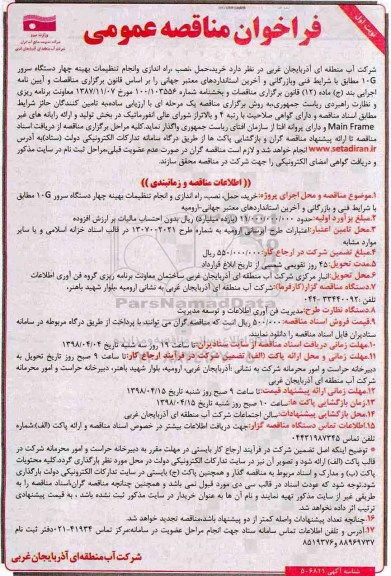 نوبت اول
فراخوان مناقصه عمومی
شرکت آب منطقه ای آذربایجان غربی در نظر دارد خرید،حمل ،نصب، راه اندازی وانجام تنظیمات بهینه چهار دستگاه سرور
10G مطابق با شرایط فنی وبازرگانی و آخرین استانداردهای معتبر جهانی را بر اساس قانون برگزاری مناقصات و آیین نامه
اجرایی بند (ج) ماده (۱۲) قانون برگزاری مناقصات و بخشنامه شماره ۱۰۰/۱۰۳۵۵۶ مورخ ۱۳۸۷/۱۱/۰۷ معاونت برنامه ریزی
و نظارت راهبردی ریاست جمهوری،به روش برگزاری مناقصه یک مرحله ای با ارزیابی ساده،به تامین کنندگان حائز شرایط
مطابق اسناد مناقصه و دارای گواهی صلاحیت با رتبه ۴ و بالاتراز شورای عالی انفورماتیک در بخش تولید و ارائه رایانه های غیر
Main Frame و دارای پروانه افتا از سازمان افتای ریاست جمهوری واگذار نماید.کلیه مراحل برگزاری مناقصه از دریافت اسناد
مناقصه تا ارائه پیشنهاد مناقصه گران و بازگشایی پاکت ها از طریق درگاه سامانه تدارکات الکترونیکی دولت (ستاد)به آدرس
www.setadiran.ir انجام خواهد شد و لازم است مناقصه گران در صورت عدم عضویت قبلی،مراحل ثبت نام در سایت مذکور
و دریافت گواهی امضای الکترونیکی را جهت شرکت در مناقصه محقق سازند.
(( اطلاعات مناقصه و زمانبندی ))
۱.موضوع مناقصه و محل اجرای پروژه:خرید، حمل، نصب، راه اندازی و انجام تنظیمات بهینه چهار دستگاه سرور 10G مطابق
با شرایط فنی و بازرگانی و آخرین استانداردهای معتبر جهانی-ارومیه
۲.مبلغ برآورد اولیه:حدود ۱۱/۰۰۰/۰۰۰/۰۰۰ (یازده میلیارد) ریال بدون احتساب مالیات بر ارزش افزوده
۳.محل تامین اعتبار:اعتبارات طرح آبرسانی ارومیه به شماره طرح ۱۳۰۷۰۰۲۰۲۱ در قالب اسناد خزانه اسلامی و یا سایر
موارد مشابه
۴.مبلغ تضمین شرکت در ارجاع کار:۵۵۰/۰۰۰/۰۰۰ ریال
۵.مدت تحویل:۴۵ روز تقویمی شمسی از تاریخ ابلاغ قرارداد
۶.محل تحویل:انبار مرکزی شرکت آب منطقه ای آذربایجان غربی ساختمان معاونت برنامه ریزی گروه فن آوری اطلاعات
۷.دستگاه مناقصه گزار(کارفرما):شرکت آب منطقه ای آذربایجان غربی به نشانی ارومیه بلوار شهید باهنر،
تلفن: ۳۳۴۴۰۰۹۲-۰۴۴
۸.دستگاه نظارت طرح:مدیریت فن آوری اطلاعات و توسعه مدیریت
۹.قیمت فروش اسناد مناقصه: ۵۰۰/۰۰۰ ریال است که مناقصه گران می توانند با پرداخت از طریق درگاه مربوطه در سامانه
ستادیران فایل اسناد مناقصه را دانلود نمایند.
۱۰.مهلت زمانی دریافت اسناد مناقصه از سایت ستادیران:تا ساعت ۱۹ روز سه شنبه تاریخ ۱۳۹۸/۰۴/۰۴
۱۱.مهلت زمانی و محل ارائه پاکت (الف) تضمین شرکت در فرآیند ارجاع کار:تا ساعت ۹ صبح روز شنبه تاریخ تحویل به
دبیرخانه حراست و امور محرمانه شرکت به نشانی :آذربایجان غربی، ارومیه، بلوار شهید باهنر، دبیرخانه حراست و امور محرمانه
شرکت آب منطقه ای آذربایجان غربی
۱۲.مهلت زمانی ارائه پیشنهاد قیمت:تا ساعت ۹ صبح روز شنبه تاریخ ۱۳۹۸/۰۴/۱۵
۱۳.زمان بازگشایی پاکت ها:ساعت ۱۰ صبح روز شنبه تاریخ ۱۳۹۸/۰۴/۱۵
۱۴.محل بازگشایی پیشنهادات:سالن اجتماعات شرکت آب منطقه ای آذربایجان غربی
۱۵.اطلاعات تماس دستگاه مناقصه گزار:جهت دریافت اطلاعات بیشتر در خصوص اسناد مناقصه و ارائه پاکت (الف):شماره
تماس ۰۴۴۳۱۹۸۷۳۴۵
* توضیح اینکه اصل تضمین شرکت در فرآیند ارجاع کار بایستی در مهلت مقرر به دبیرخانه حراست و امور محرمانه شرکت در
قالب پاکت (الف) ارائه شود و تصویر آن نیز در سایت تدارکات الکترونیکی دولت در محل مورد نظر بارگذاری گردد.کلیه محتویات
پاکت (ب) و مدارک و اسناد مربوط به مناقصه گذار و همچنین پاکت (ج) بایستی در سایت تدارکات الکترونیکی دولت بارگذاری
شود.توجه شود که عودت اسناد در قالب سی دی مورد قبول نمی باشد و همچنین چنانچه مناقصه گران،اسناد مناقصه را به
طریقی غیر از سایت مذکور تهیه نمایند و نام آن ها به عنوان خریدار در سایت مذکور ثبت نشده باشد ، به قیمت پیشنهادی
ترتیب اثر داده نخواهد شد.
۱۶.چنانچه تعداد پیشنهادات واصله کمتر از دو پیشنهاد باشد،مناقصه تجدید خواهد شد.
۱۷.آدرس و تلفن اطلاعات تماس سامانه ستاد جهت انجام مراحل عضویت در سامانه:مرکز تماس ۴۱۹۳۴-۰۲۱ دفتر ثبت نام
۸۸۹۶۹۷۳۷ و ۸۵۱۹۳۷۶۸
شرکت آب منطقه ای آذربایجان غربی
شناسه آگهی ۵۰۶۸۲۱